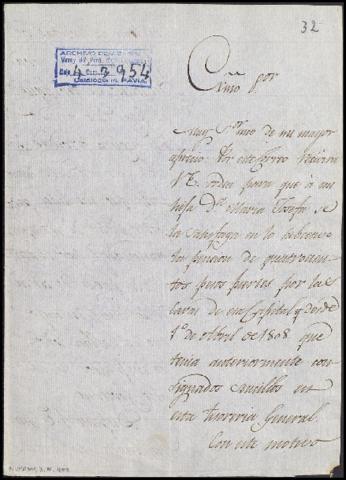 32
ARCHIVO
4 2954
PAVIA
Exmo Sor
Muy Sr mio de mi mayor
aprecio: Por este Correo recivira
V.E. orden para que á mi
hija Dª Maria Josefa se
la satisfaga en lo
la pension de quatrocien-
tos pesos fuertes por las
Caxas de esa Capital y desde
1º de Abril de 1808 que
tenia anteriormente con-
signados en
esta Tesoreria General.
Con este motivo